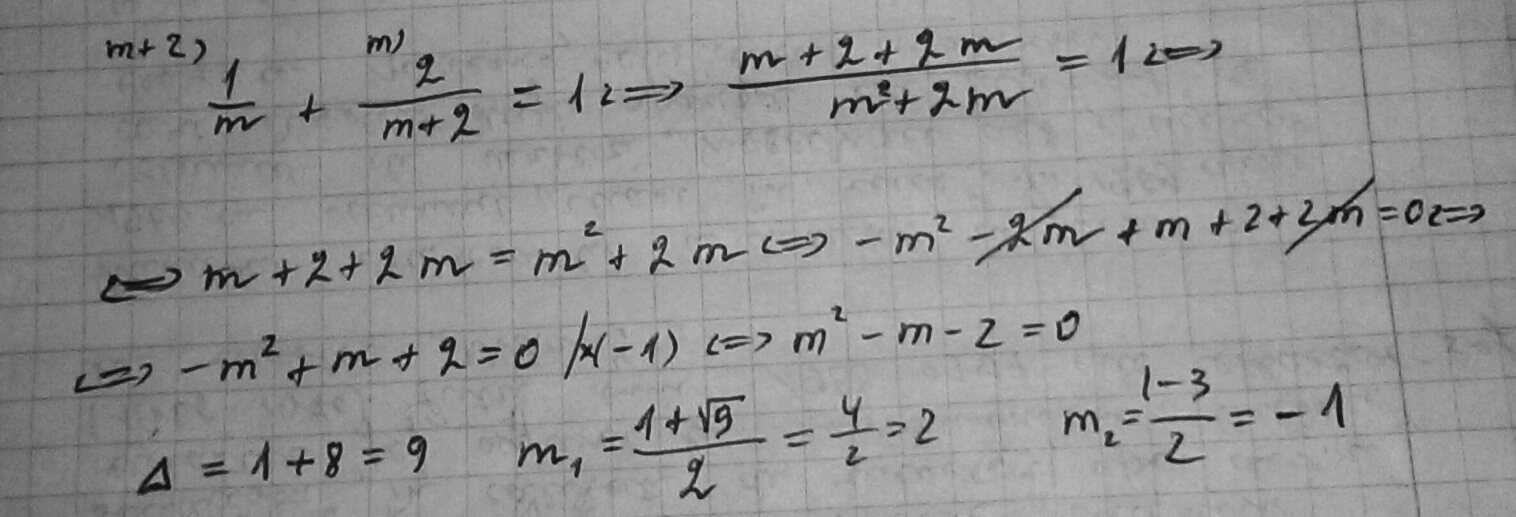 m+2) 1/m + m) 2/(m+2) = 1 <=> (m+2+2m)/(m²+2m) = 1 <=>
<=> m+2+2m = m²+2m <=> -m² -2m + m + 2 + 2m = 0 <=>
<=> -m² + m + 2 = 0 /x(-1) <=> m² - m - 2 = 0
Δ = 1+8 = 9 m₁ = (1+√9)/2 = 4/2 = 2 m₂ = (1-3)/2 = -1